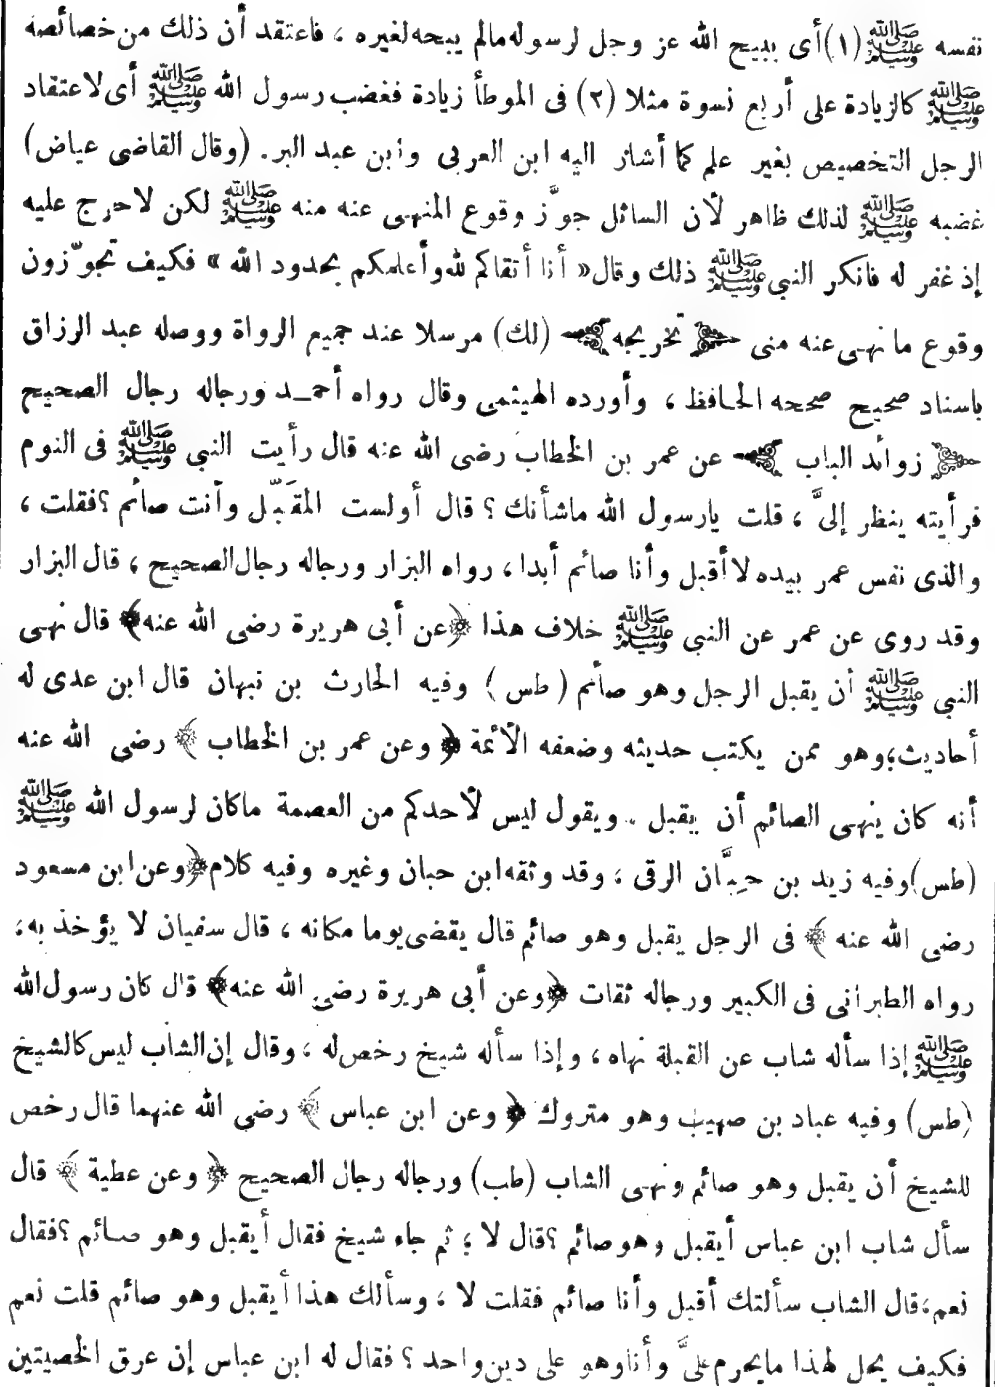 نفسه ﷺ (١) أى يبيح الله عز وجل لرسوله مالم يبحه لغيره ، فاعتقد أن ذلك من خصائصه
ﷺ كالزيادة على أربع نسوة مثلا (٢) فى الموطأ زيادة فغضب رسول الله ﷺ أى لاعتقاد
الرجل التخصيص بغير علم كما أشار اليه ابن العربى وابن عبد البر. (وقال القاضى عياض)
غضبه ﷺ لذلك ظاهر لأن السائل جوَّز وقوع المنهى عنه منه ﷺ لكن لاحرج عليه
إذ غفر له فانكر النبى ﷺ ذلك وقال « أنا أتقاكم لله وأعلمكم بحدود الله » فكيف تجوّزون
وقوع ما نهى عنه منى ﴿ تخريجه ﴾ (لك) مرسلا عند جميع الرواة ووصله عبد الرزاق
باسناد صحيح صححه الحافظ ، وأورده الهيثمى وقال رواه أحمـد ورجاله رجال الصحيح
﴿ زوائد الباب ﴾ عن عمر بن الخطاب رضى الله عنه قال رأيت النبى ﷺ فى النوم
فرأيته ينظر إلىَّ ، قلت يارسول الله ماشأنك ؟ قال أولست المقَبّل وأنت صائم ؟ فقلت ،
والذى نفس عمر بيده لا أقبل وأنا صائم أبدا ، رواه البزار ورجاله رجال الصحيح ، قال البزار
وقد روى عن عمر عن النبى ﷺ خلاف هذا ﴿عن أبى هريرة رضى الله عنه﴾ قال نهى
النبى ﷺ أن يقبل الرجل وهو صائم (طس) وفيه الحارث بن نبهان قال ابن عدى له
أحاديث؛ وهو ممن يكتب حديثه وضعفه الأئمة ﴿ وعن عمر بن الخطاب ﴾ رضى الله عنه
أنه كان ينهى الصائم أن يقبل . ويقول ليس لأحدكم من العصمة ماكان لرسول الله ﷺ
(طس) وفيه زيد بن حِبَّان الرقى ، وقد وثقه ابن حبان وغيره وفيه كلام ﴿وعن ابن مسعود
رضى الله عنه ﴾ فى الرجل يقبل وهو صائم قال يقضى يوما مكانه ، قال سفيان لا يؤخذ به ،
رواه الطبرانى فى الكبير ورجاله ثقات ﴿وعن أبى هريرة رضى الله عنه﴾ قال كان رسول الله
ﷺ إذا سأله شاب عن القبلة نهاه ، وإذا سأله شيخ رخص له ، وقال إن الشاب ليس كالشيخ
(طس) وفيه عباد بن صهيب وهو متروك ﴿ وعن ابن عباس ﴾ رضى الله عنهما قال رخص
للشيخ أن يقبل وهو صائم ونهى الشاب (طب) ورجاله رجال الصحيح ﴿ وعن عطية ﴾ قال
سأل شاب ابن عباس أيقبل وهو صائم ؟ قال لا ؛ ثم جاء شيخ فقال أيقبل وهو صائم ؟ فقال
نعم ، قال الشاب سألتك أقبل وأنا صائم فقلت لا ، وسألك هذا أيقبل وهو صائم قلت نعم
فكيف يحل لهذا مايحرم علىَّ وأنا وهو على دين واحد ؟ فقال له ابن عباس إن عرق الخصيتين